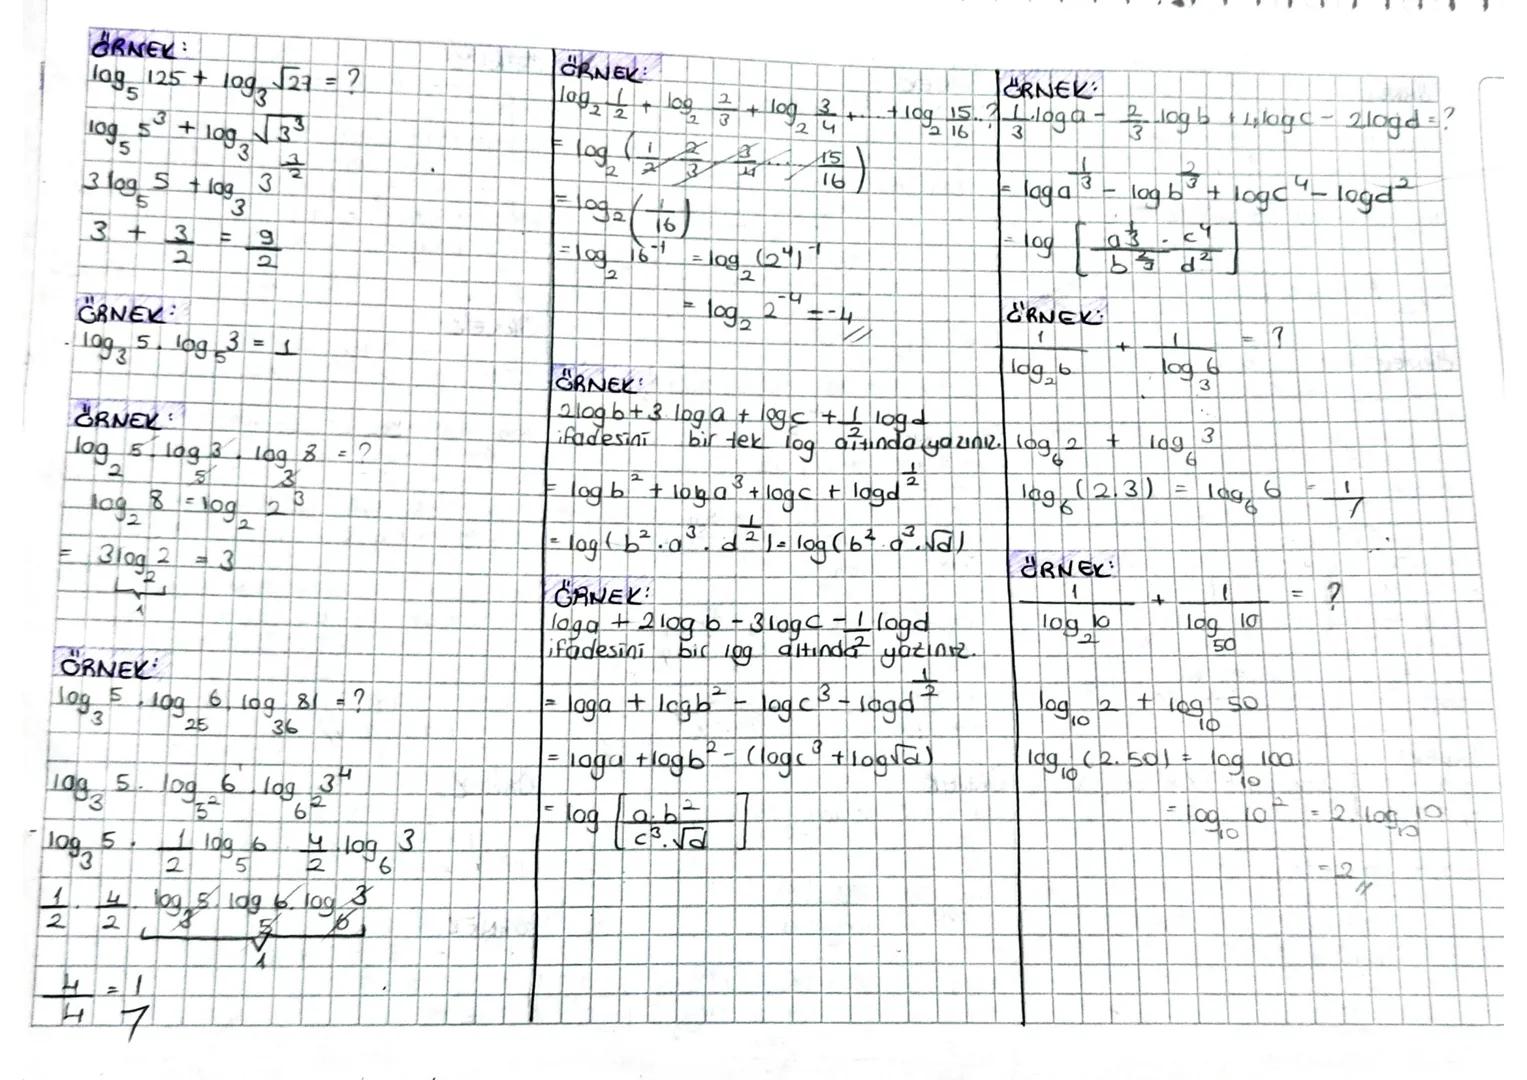 ÖRNEK:
log₅ 125 + log₃ √27 = ?
log₅ 5³ + log₃ √3³
3 log₅ 5 + log₃ 3^(3/2)
3 + 3/2 = 9/2
ÖRNEK:
log₃ 5 . log₅ 3 = 1
ÖRNEK:
log₂ 5 . log₅ 3 . log₃ 8 = ?
log₂ 8 = log₂ 2³
= 3 log₂ 2 = 3
1
ÖRNEK:
log₃ 5 . log₂₅ 6 . log₃₆ 81 = ?
log₃ 5 . log_(5²) 6 . log_(6²) 3⁴
log₃ 5 . 1/2 log₅ 6 4/2 . log₆ 3
1/2 . 4/2 . log₃ 5 . log₅ 6 . log₆ 3
1
4/4 = 1
ÖRNEK:
log₂ 1/2 + log₂ 2/3 + log₂ 3/4 + ... + log₂ 15/16 = ?
= log₂ (1/2 . 2/3 . 3/4 ... 15/16)
= log₂ (1/16)
= log₂ 16⁻¹ = log₂ (2⁴)⁻¹
= log₂ 2⁻⁴ = -4
ÖRNEK:
2logb + 3 loga + logc + 1/2 logd
ifadesini bir tek log altında yazınız.
= logb² + loga³ + logc + logd^(1/2)
= log(b² . a³ . d^(1/2)) = log(b² . a³ . √d)
ÖRNEK:
loga + 2logb - 3logc - 1/2 logd
ifadesini bir log altında yazınız.
= loga + logb² - logc³ - logd^(1/2)
= loga + logb² - (logc³ + log√d)
= log [a.b² / c³.√d]
ÖRNEK:
1/3 . loga - 2/3 . logb + 4logc - 2logd = ?
= loga^(1/3) - logb^(2/3) + logc⁴ - logd²
= log [a^(1/3) . c⁴ / b^(2/3) d²]
ÖRNEK:
1/log₂ 6 + 1/log₃ 6 = ?
log₆ 2 + log₆ 3
log₆ (2.3) = log₆ 6 = 1
ÖRNEK:
1/log₂ 10 + 1/log₅₀ 10 = ?
log₁₀ 2 + log₁₀ 50
log₁₀ (2.50) = log₁₀ 100
= log₁₀ 10² = 2. log₁₀ 10
= 2